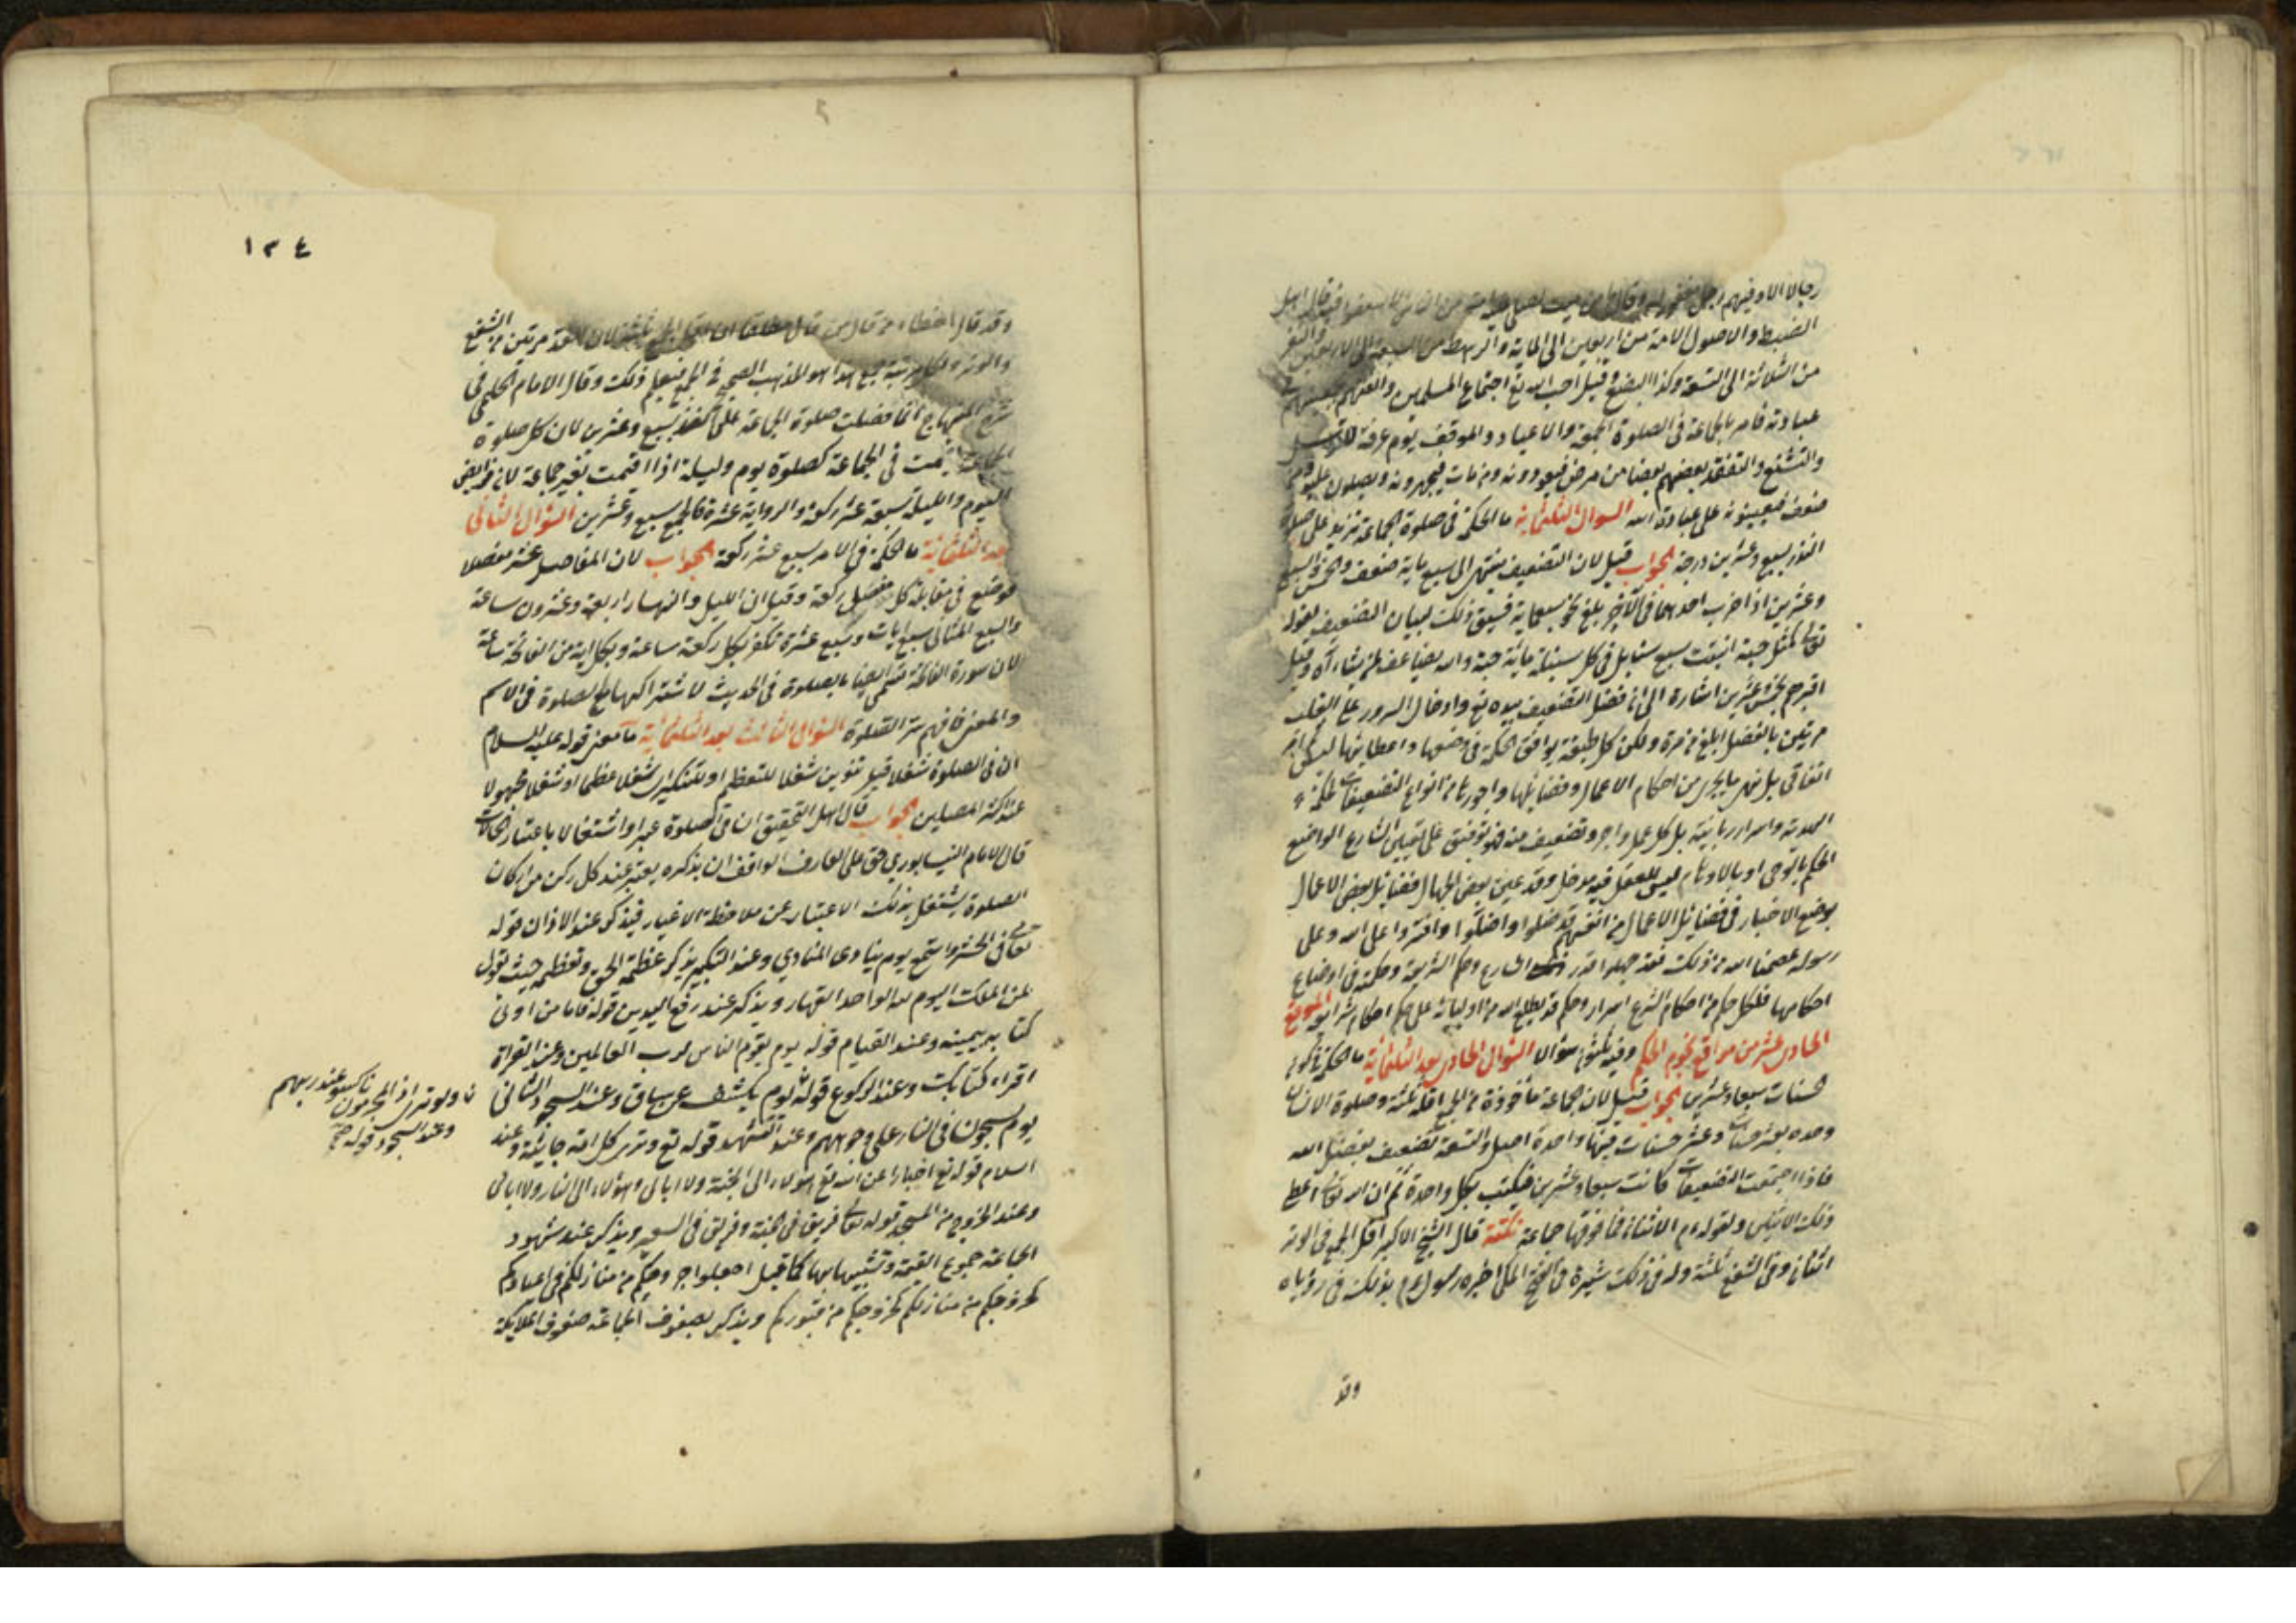 رجالا الا وفيهم رجل مغفور له وقال من ميت يصلى عليه امة من الناس الا شفعوا فيه قال اهل
الضبط والاصول الامة من اربعين الى الماية والرهط من السبعة الى الاربعين والنفر
من الثلاثة الى التسعة وكذا البضع وقيل احب الله تع اجتماع المسلمين والفتهم بعضهم
عبادته فامر بالجماعة فى الصلوة الجمعة والاعياد والموقف يوم عرفة
والتشفع والتفقد بعضهم بعضا من مرض فيعودونه ومن مات فيجهزونه ويصلون عليه ومن
ضعف فيعينونه على عبادة الله السوال الثلثمائة ما الحكمة فى صلوة الجماعة تزيد على صلوة
الفذ بسبع وعشرين درجة الجواب قيل لان التضعيف ينتهى الى سبع ماية ضعف والخمس والسبع
وعشرين اذا ضرب احدهما فى الآخر بلغ نحو سبعماية فسيق ذلك لبيان التضعيف لقوله
تعالى كمثل حبة انبتت سبع سنابل فى كل سنبلة مائة حبة والله يضاعف لمن يشاء آه وقيل
اقترح بخمس وعشرين اشارة الى ان فضل التضعيف بيده تع وادخال السرور على القلب
مرتين بالفضل ابلغ من مرة ولكن كل طبقة يوافق الحكمة فى وضعها واعطايها ليس بامر
اتفاقى بل نهر ما يجرى من احكام الاعمال وفضايلها واجورها من انواع التضعيفات لحكمة
الهية واسرار ربانية بل كل عمل واجر وتضعيف منه فهو توفيق على تعيين الشارع الواضع
الحكم بالوحى او بالالهام ليس للعقل فيه مدخل وقد عين بعض الجهال فضايل بعض الاعمال
بوضع الاخبار فى فضايل الاعمال من انفسهم قد ضلوا واضلوا وافتروا على الله وعلى
رسوله عصمنا الله من ذلك فقد جهلوا قدر الشارع وحكم الشريعة وحكمته فى اوضاع
احكامها فلكل حكم من احكام الشرع اسرار وحكم قد يطلع الله من اوليائه على حكم احكام شرايعه الموقع
الحادى عشر من مواقع نجوم الحكم وفيه ثلثون سؤالا السؤال الحادى بعد الثلثمائة ما الحكمة فى كون
حسنات سبعا وعشرين الجواب قيل لان جماعة ماخوذة من الجمع اقله ثلثة وصلوة الانسان
وحده بعشر حسنات وعشر حسنات فيها واحدة اصل والتسعة تضعيف بفضل الله
فاذا اجتمعت التضعيفات كانت سبعا وعشرين فيكتب بكل واحدة ثم ان الله تعالى اعطى
ذلك الاثنين ولقوله ءم الاثنان فما فوقها جماعة نكتة قال الشيخ الاكبر اقل الجمع فى الوتر
اثنان وفى الشفع ثلثة وله فى ذلك شهرة فى الفتح المكى اخبره رسول ءم بذلك فى رؤياه
وقد
١٣٤
وقد قال اخطاء من قال من قال مطلقا ان اقل الجمع ثلثة لان العقد مرتين من الشفع
والوتر ولكل مرتبة جمع هذا هو المذهب الصحيح فى الجمع فيعلم ذلك وقال الامام الحليمى فى
شرح المنهاج انما فضلت صلوة الجماعة على الفذ بسبع وعشرين لان كل صلوة
اقيمت فى الجماعة كصلوة يوم وليلة اذا اقيمت بغير جماعة لان فرايض
اليوم والليلة سبعة عشر ركعة والرواية عشرة فالجمع سبع وعشرين السؤال الثانى
بعد الثلثمائة ما الحكمة فى الامر بسبع عشر ركعة الجواب لان المفاصل عشر مفصلا
فوضع فى مقابلة كل مفصل ركعة وقيل ان الليل والنهار اربعة وعشرون ساعة
والسبع المثانى سبع ايات وسبع عشرة تكفر بكل ركعة ساعة وبكل اية من الفاتحة ساعة
لان سورة الفاتحة تسمى ايضا بالصلوة فى الحديث لاشتراكها مع الصلوة فى الاسم
والمعنى فافهم سر الصلوة السؤال الثالث بعد الثلثمائة ما معنى قوله عليه السلام
ان فى الصلوة شغلا قيل تنوين شغلا للتعظيم او للتنكير اى شغلا عظيما او شغلا مجهولا
عند اكثر المصلين الجواب قال اهل التحقيق ان فى الصلوة عبرا واشتغالا باعتبار الحالات
قال الامام النيسابورى حق على العارف الواقف ان يذكره يعتبر عند كل ركن من اركان
الصلوة يشتغل بذلك الاعتبار عن ملاحظة الاغيار فيذكر عند الاذان قوله
تعالى فى الحشر واستمع يوم ينادى المنادى وعند التكبير يذكر عظمة الحق وتعظمه حيث يقول
لمن الملك اليوم لله الواحد القهار ويذكر عند رفع اليدين قوله فاما من اوتى
كتابه بيمينه وعند القيام قوله يوم يقوم الناس لرب العالمين وعند القراة
اقراء كتابك وعند الركوع قوله يوم يكشف عن ساق وعند السجود الثانى
يوم يسحبون فى النار على وجوههم وعند التشهد قوله تع وترى كل امة جاثية وعند
السلام قوله تع اخبارا عن الله تع هؤلاء الى الجنة ولا ابالى وهؤلاء الى النار ولا ابالى
وعند الخروج من المسجد قوله تعالى فريق فى الجنة وفريق فى السعير ويذكر عند شهود
الجماعة جموع القيمة وتشبيهاتها كما قيل اجعلوا خروجكم من منازلكم فى اعيادكم
كخروجكم من منازلكم كخروجكم من قبوركم ويذكر بصفوف الجماعة صفوف الملايكة
ولو ترى اذ المجرمون ناكسوا عند ربهم
وعند السجود قوله صح